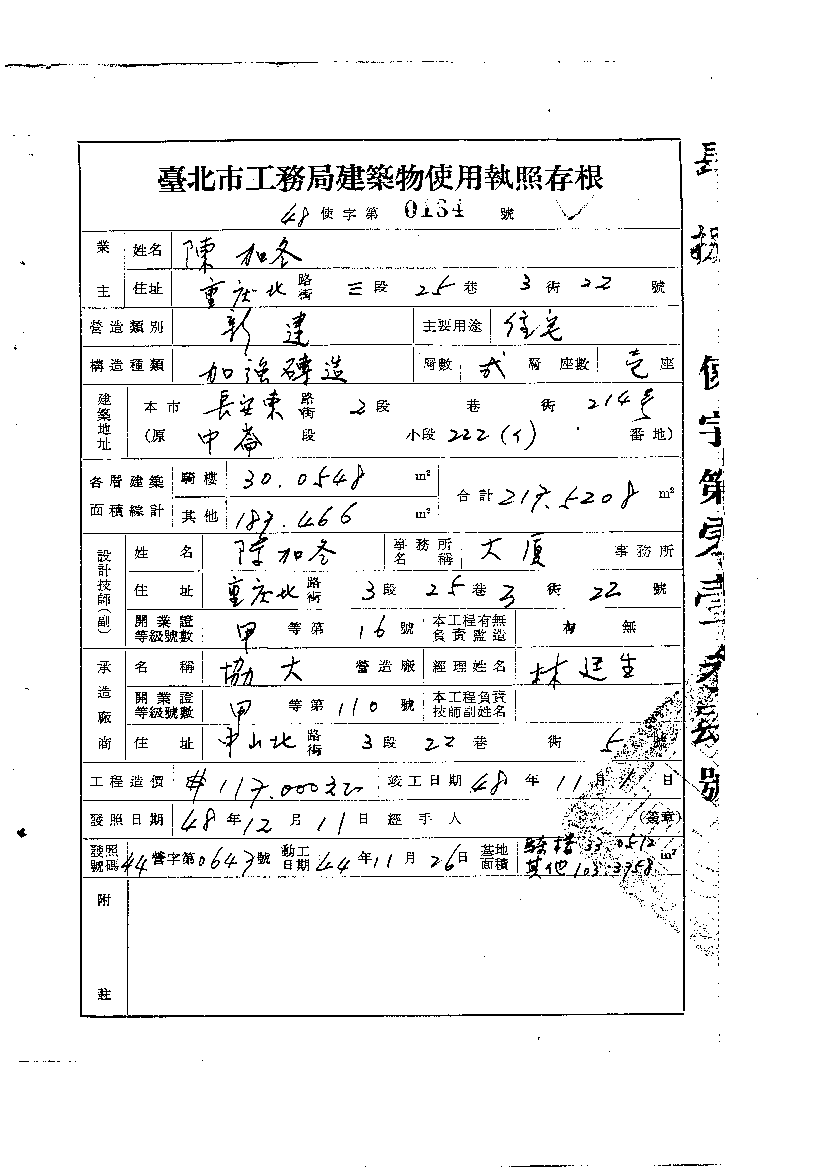 臺北市工務局建築物使用執照存根
48 使字第 0134 號
業主 姓名 陳加冬
住址 重庆北 路街 三段 25巷 3街 22 號
營造類別 新建 主要用途 住宅
構造種類 加強磚造 層數 弍層 座數 壱座
建築地址 本市 長安東 路街 2段 巷 街 214号
(原 中崙 段 小段 222(イ) 番地)
各層建築面積總計 騎樓 30.0548 m² 合計 217.5208 m²
其他 187.466 m²
設計技師(副) 姓名 陳加冬 事務所名稱 大厦 事務所
住址 重庆北 路街 3段 25巷 3街 22 號
開業證等級號數 甲 等第 16 號 本工程有無負責監造 有 無
承造廠商 名稱 協大 營造廠 經理姓名 林廷生
開業證等級號數 甲 等第 110 號 本工程負責技師副姓名
住址 中山北 路街 3段 22巷 街 5 號
工程造價 #117.000元 竣工日期 48年 11月 1日
發照日期 48年12月11日 經手人 (簽章)
發照號碼 44營字第0643號 動工日期 44年11月26日 基地面積 騎樓 33.0512 其他 103.3958 m²
附註
使字第零壹
號